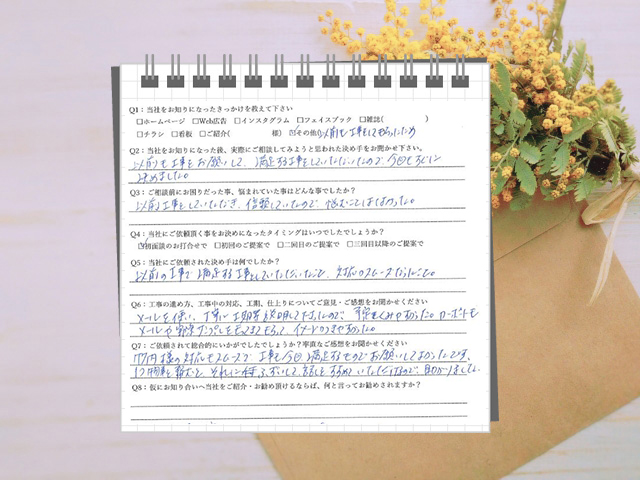 Q1：当社をお知りになったきっかけを教えて下さい
□ホームページ □Web広告 □インスタグラム □フェイスブック □雑誌( )
□チラシ □看板 □ご紹介( 様) ☑その他(以前も工事をしてもらったため
Q2：当社をお知りになった後、実際にご相談してみようと思われた決め手をお聞かせ下さい。
以前も工事をお願いして、満足する工事をしていただいたので、今回もすぐに
決めました。
Q3：ご相談前にお困りだった事、悩まれていた事はどんな事でしたか？
以前工事をしていただき、信頼していたので、悩むことはなかった。
Q4：当社にご依頼頂く事をお決めになったタイミングはいつでしたでしょうか？
☑初面談のお打合せで □初回のご提案で □二回目のご提案で □三回目以降のご提案で
Q5：当社にご依頼された決め手は何でしたか？
以前の工事で満足する工事をしていただいたこと、対応がスムーズだったこと。
Q6：工事の進め方、工事中の対応、工期、仕上りについてご意見・ご感想をお聞かせください
メールを使い、丁寧に説明して下さったので、予定もくみやすかった。
メールや
Q7：ご依頼されて総合的にいかがでしたでしょうか？率直なご感想をお聞かせください
様の対応もスムーズで、工事も今回も満足するものでお願いしてよかったです。
していただけたので、助かりました。
Q8：仮にお知り合いへ当社をご紹介・お勧め頂けるならば、何と言ってお勧めされますか？